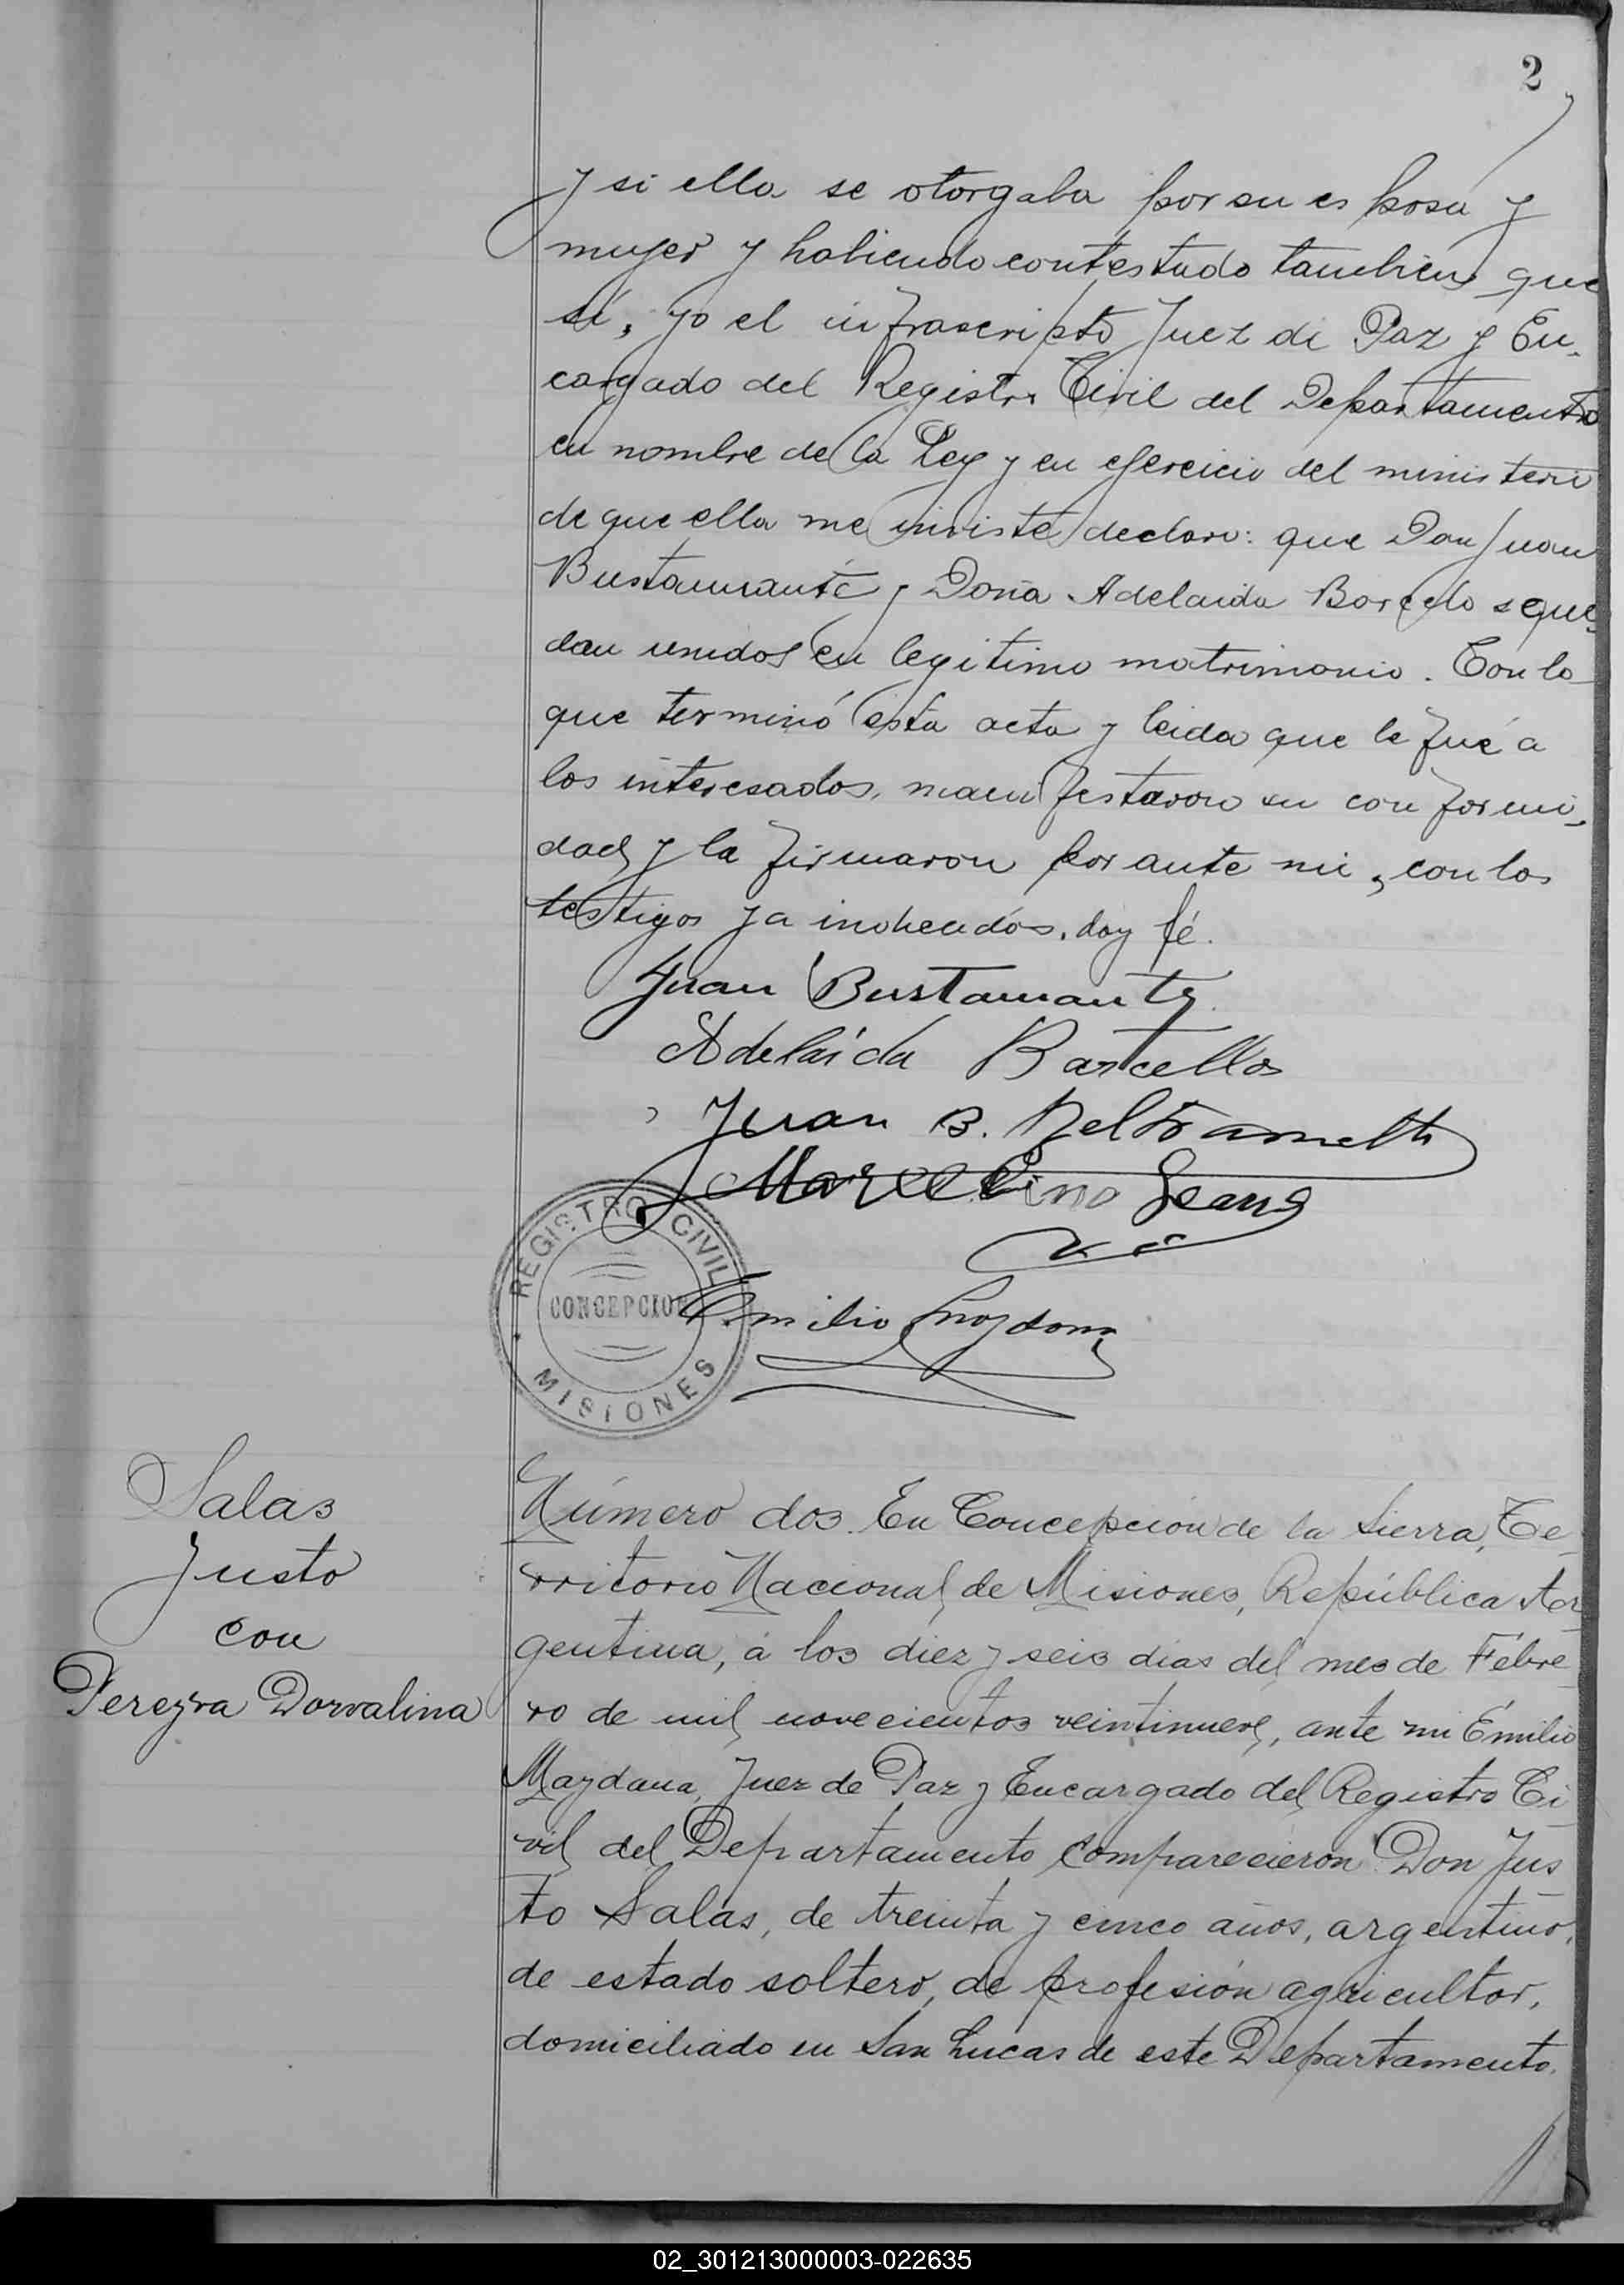 2
y si ella se otorgaba por su esposa y
mujer y habiendo contestado tambien que
sí, yo el infrascripto Juez de Paz y En-
cargado del Registro Civil del Departamento
en nombre de la Ley y en ejercicio del ministerio
de que ella me inviste declaro: que Don Juan
Bustamante y Doña Adelaida Barcelo sque-
dan unidos en legitimo matrimonio. Con lo
que terminó esta acta y leida que le fué a
los interesados, manifestaron su conformi-
dad y la firmaron por ante mi, con los
testigos ya indicados, doy fé.
Juan Bustamante
Adelaida Barcellos
Juan B. Beltrametti
Marcelino
REGISTRO CIVIL
CONCEPCION
MISIONES
Emilio Mazdana
Salas
Justo
con
Pereyra Dorvalina
Número dos. En Concepción de la Sierra, Te-
rritorio Nacional de Misiones, República Ar-
gentina, á los diez y seis días del mes de Febre-
ro de mil novecientos veintinueve, ante mi Emilio
Mazdana, Juez de Paz y Encargado del Registro Ci-
vil del Departamento comparecieron Don Jus-
to Salas, de treinta y cinco años, argentino,
de estado soltero, de profesión agricultor,
domiciliado en San Lucas de este Departamento.
02_301213000003-022635